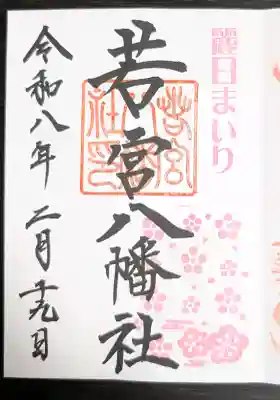 麗日まいり
若宮八幡社
若宮
社印
令和八年 二月十九日